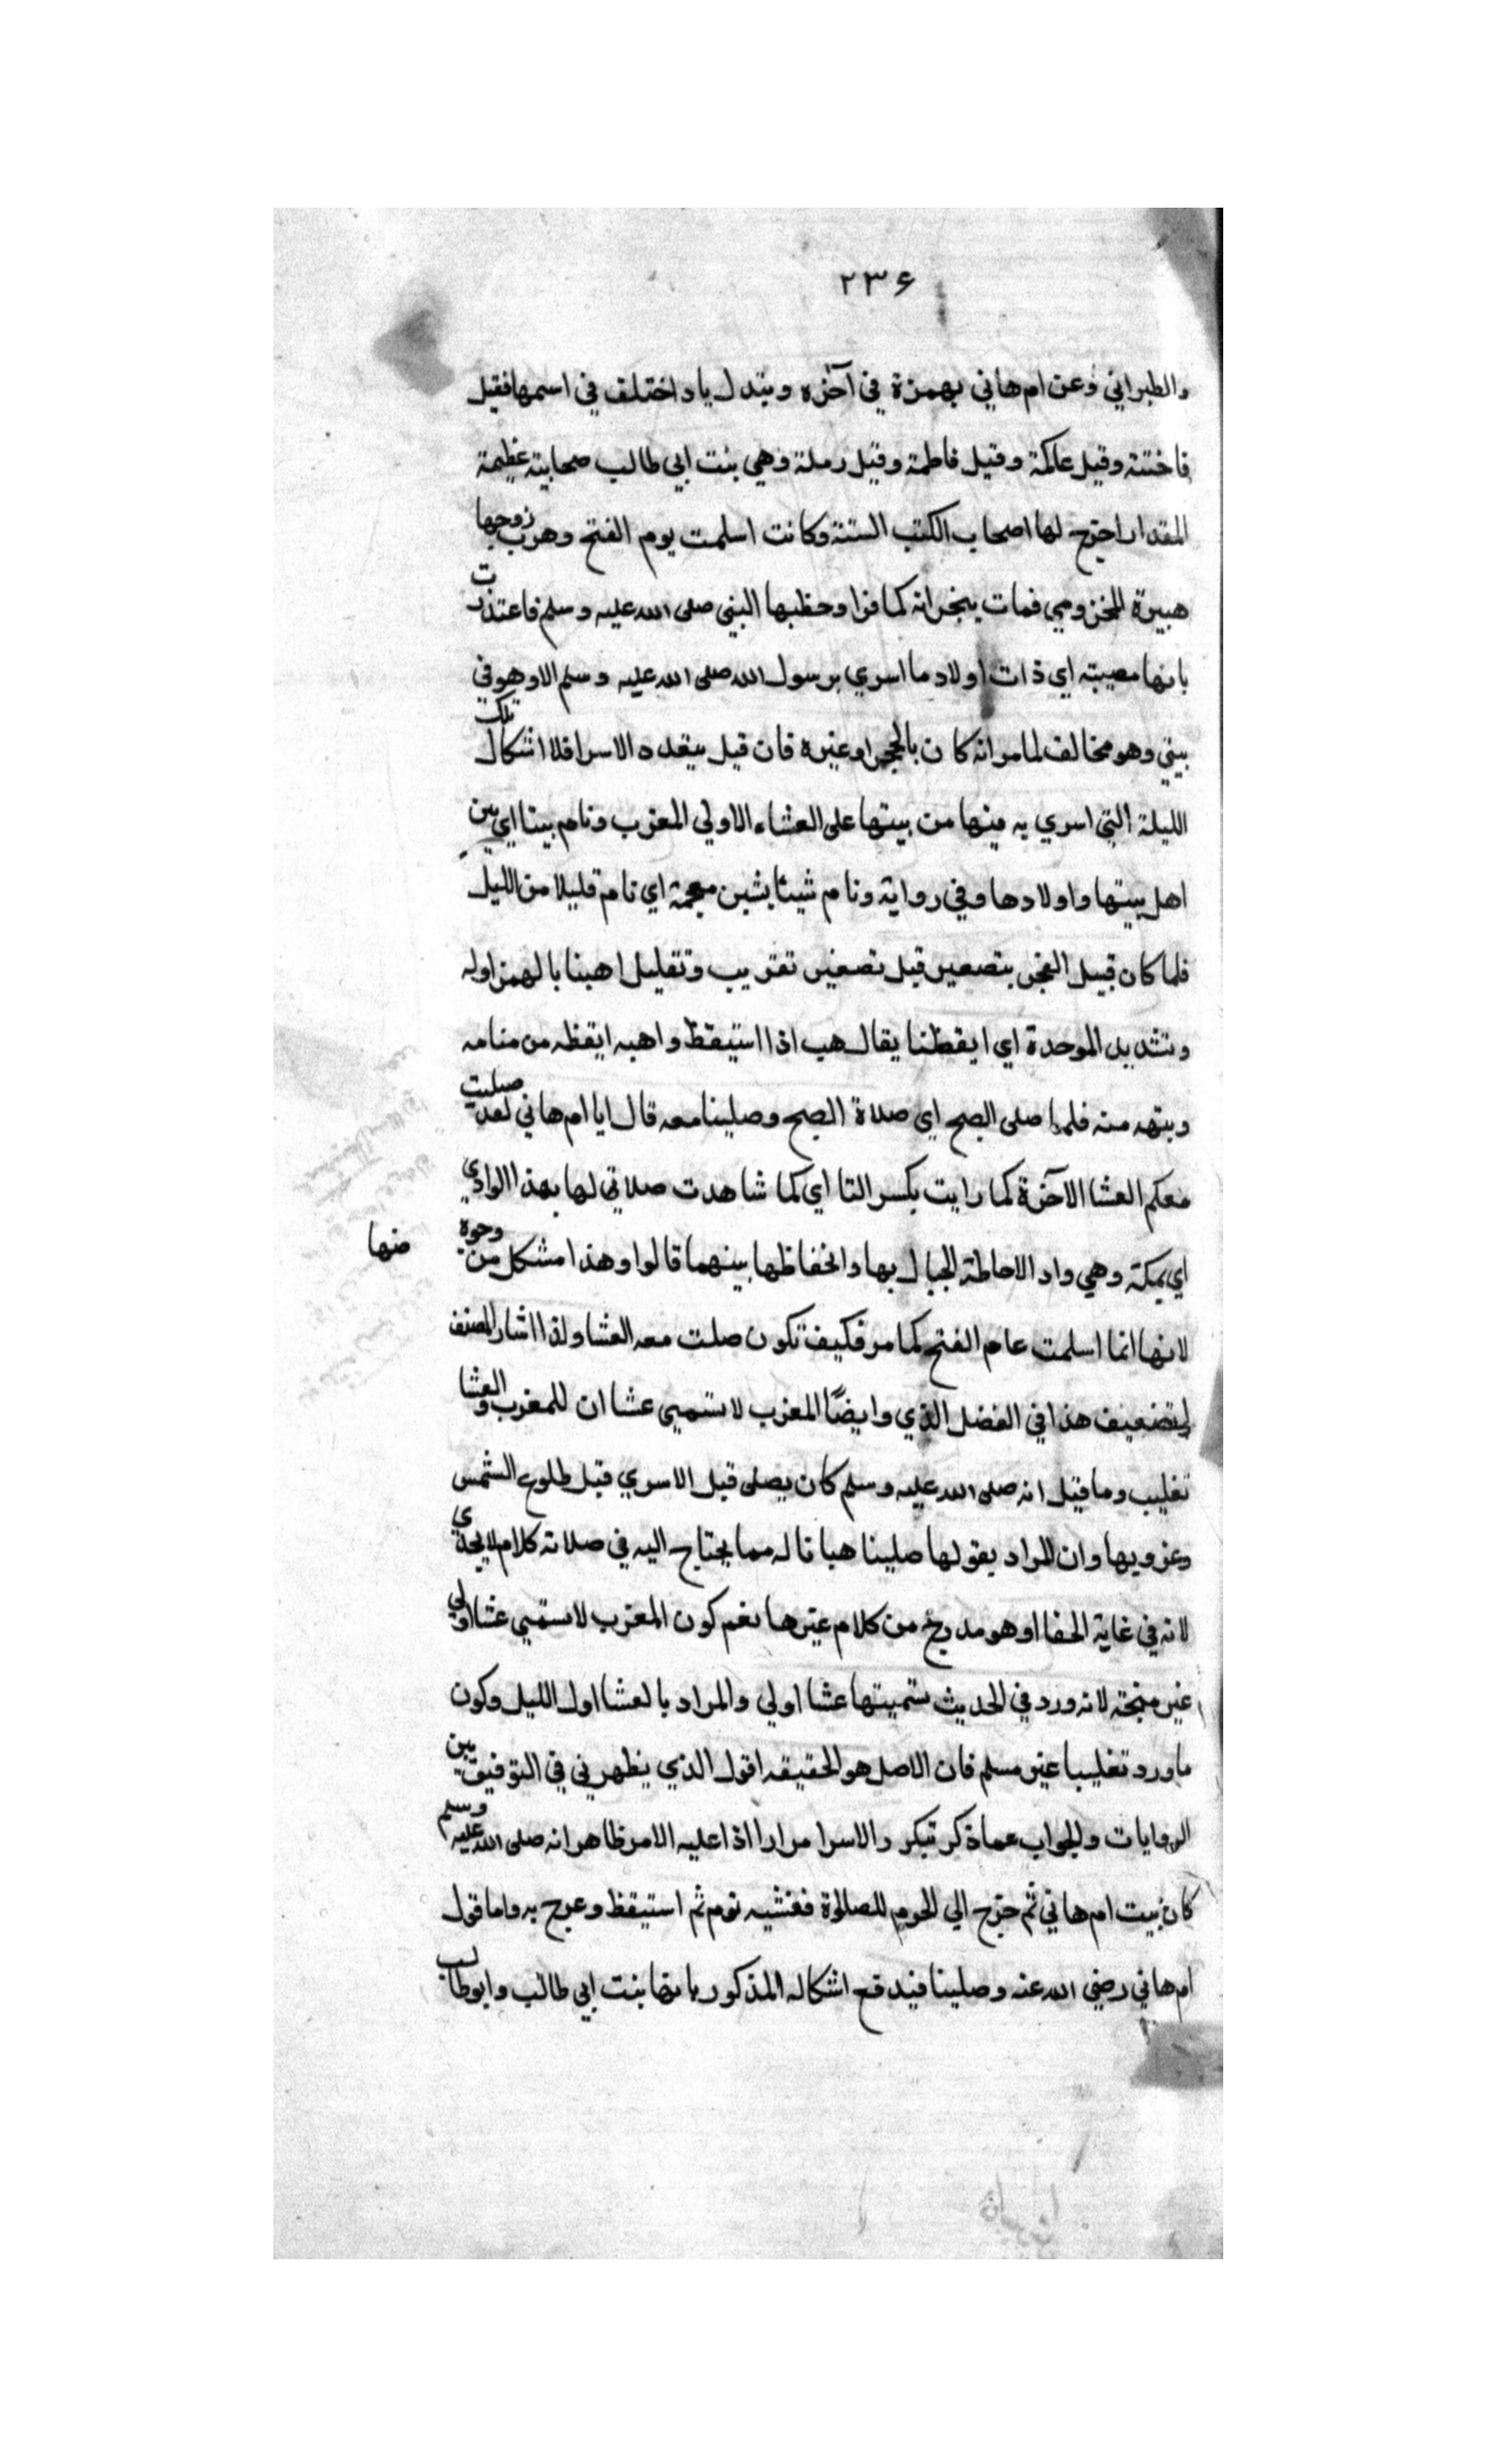 ٢٣۶
والطبراني وعن ام هاني بهمزة في آخره وتبدل ياء واختلف في اسمها فقيل
فاختة وقيل عاتكة وقيل فاطمة وقيل رملة وهي بنت ابي طالب صحابية عظيمة
المقدار اخرج لها اصحاب الكتب الستة وكانت اسلمت يوم الفتح وهرب زوجها
هبيرة المخزومي فمات بنجران كافرا وخطبها النبي صلى الله عليه وسلم فاعتذرت
بانها مصبية اي ذات اولاد ما اسري برسول الله صلى الله عليه وسلم الا وهو في
بيتي وهو مخالف لما مر انه كان بالحجر او غيره فان قيل بتعدد الاسرا فلا اشكال تلك
الليلة التي اسري به فيها من بيتها على العشاء الاولي المغرب ونام بيننا اي بين
اهل بيتها واولادها وفي رواية ونام شيئا بشين معجمة اي نام قليلا من الليل
فلما كان قبيل الفجر بتصغير قبل تصغير تقريب وتقليل اهبنا بالهمز اوله
وتشديد الموحدة اي ايقظنا يقال هب اذا استيقظ واهبه ايقظه من منامه
ونبهه منه فلما صلى الصبح اي صلاة الصبح وصلينا معه قال ايا ام هاني لقد صليت
معكم العشا الآخرة كما رايت بكسر التا اي كما شاهدت صلاتي لها بهذا الوادي
اي بمكة وهي واد لاحاطة الجبال بها وانخفاظها بينهما قالوا وهذا مشكل من وجوه
منها
لانها انما اسلمت عام الفتح كما مر فكيف تكون صلت معه العشا ولذا اشار المصنف
لتضعيف هذا في الفصل الذي وايضًا المغرب لا تسمى عشا ان للمغرب والعشا
تغليب وما قيل انه صلى الله عليه وسلم كان يصلى قبل الاسري قبل طلوع الشمس
وغروبها وان المراد بقولها صلينا هيانا له مما يحتاج اليه في صلاته كلام لا يجدي
لانه في غاية الخفا او هو مدرج من كلام غيرها نعم كون المغرب لا تسمى عشا اولي
غير متجه لانه ورد في الحديث تسميتها عشا اولي والمراد بالعشا اول الليل وكون
ما ورد تغليبا غير مسلم فان الاصل هو الحقيقه اقول الذي يظهر لي في التوفيق بين
الروايات والجواب عما ذكر تبكر ر الاسرا مرارا اذا عليه الامر ظاهر انه صلى الله عليه وسلم
كان ببيت ام هاني ثم خرج الي الحرم للصلوة فغشيه نوم ثم استيقظ وعرج به واما قول
ام هاني رضي الله عنه وصلينا فيدفع اشكاله المذكور بانها بنت ابي طالب وابو طالب